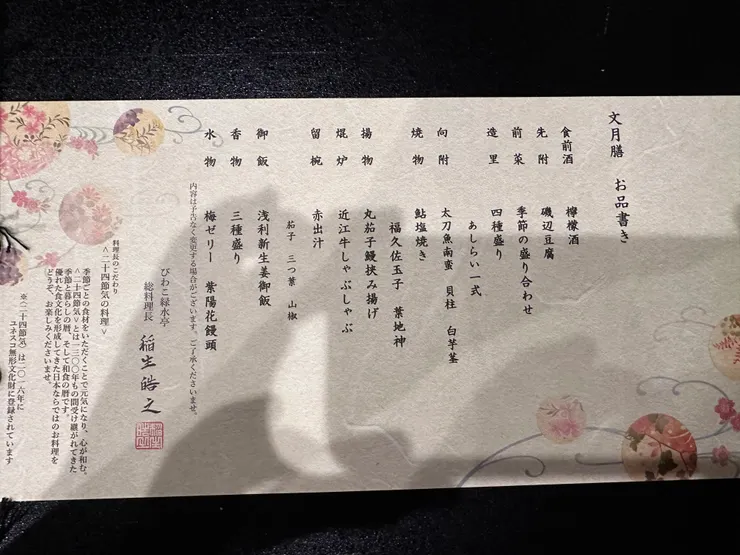 文月膳　お品書き
食前酒　檸檬酒
先附　磯辺豆腐
前菜　季節の盛り合わせ
造里　四種盛り
あしらい一式
向附　太刀魚南蛮　貝柱　白芋茎
焼物　鮎塩焼き
福久佐玉子　葉地神
揚物　丸茄子鰻挟み揚げ
焜炉　近江牛しゃぶしゃぶ
留椀　赤出汁
茄子　三つ葉　山椒
御飯　浅利新生姜御飯
香物　三種盛り
水物　梅ゼリー　紫陽花饅頭
内容は予告なく変更する場合がございます。ご了承くださいませ。
びわこ緑水亭
総料理長　稲生皓之
料理長のこだわり
＜二十四節気の料理＞
季節ごとの食材をいただくことで元気になり、心が和む。
＜二十四節気＞とは一三〇〇年もの間受け継がれてきた
季節と暮らしの暦、そして和食の暦です。
優れた食文化を形成してきた日本ならではのお料理を
どうぞ、お楽しみくださいませ。
※〈二十四節気〉は二〇一六年に
ユネスコ無形文化財に登録されています